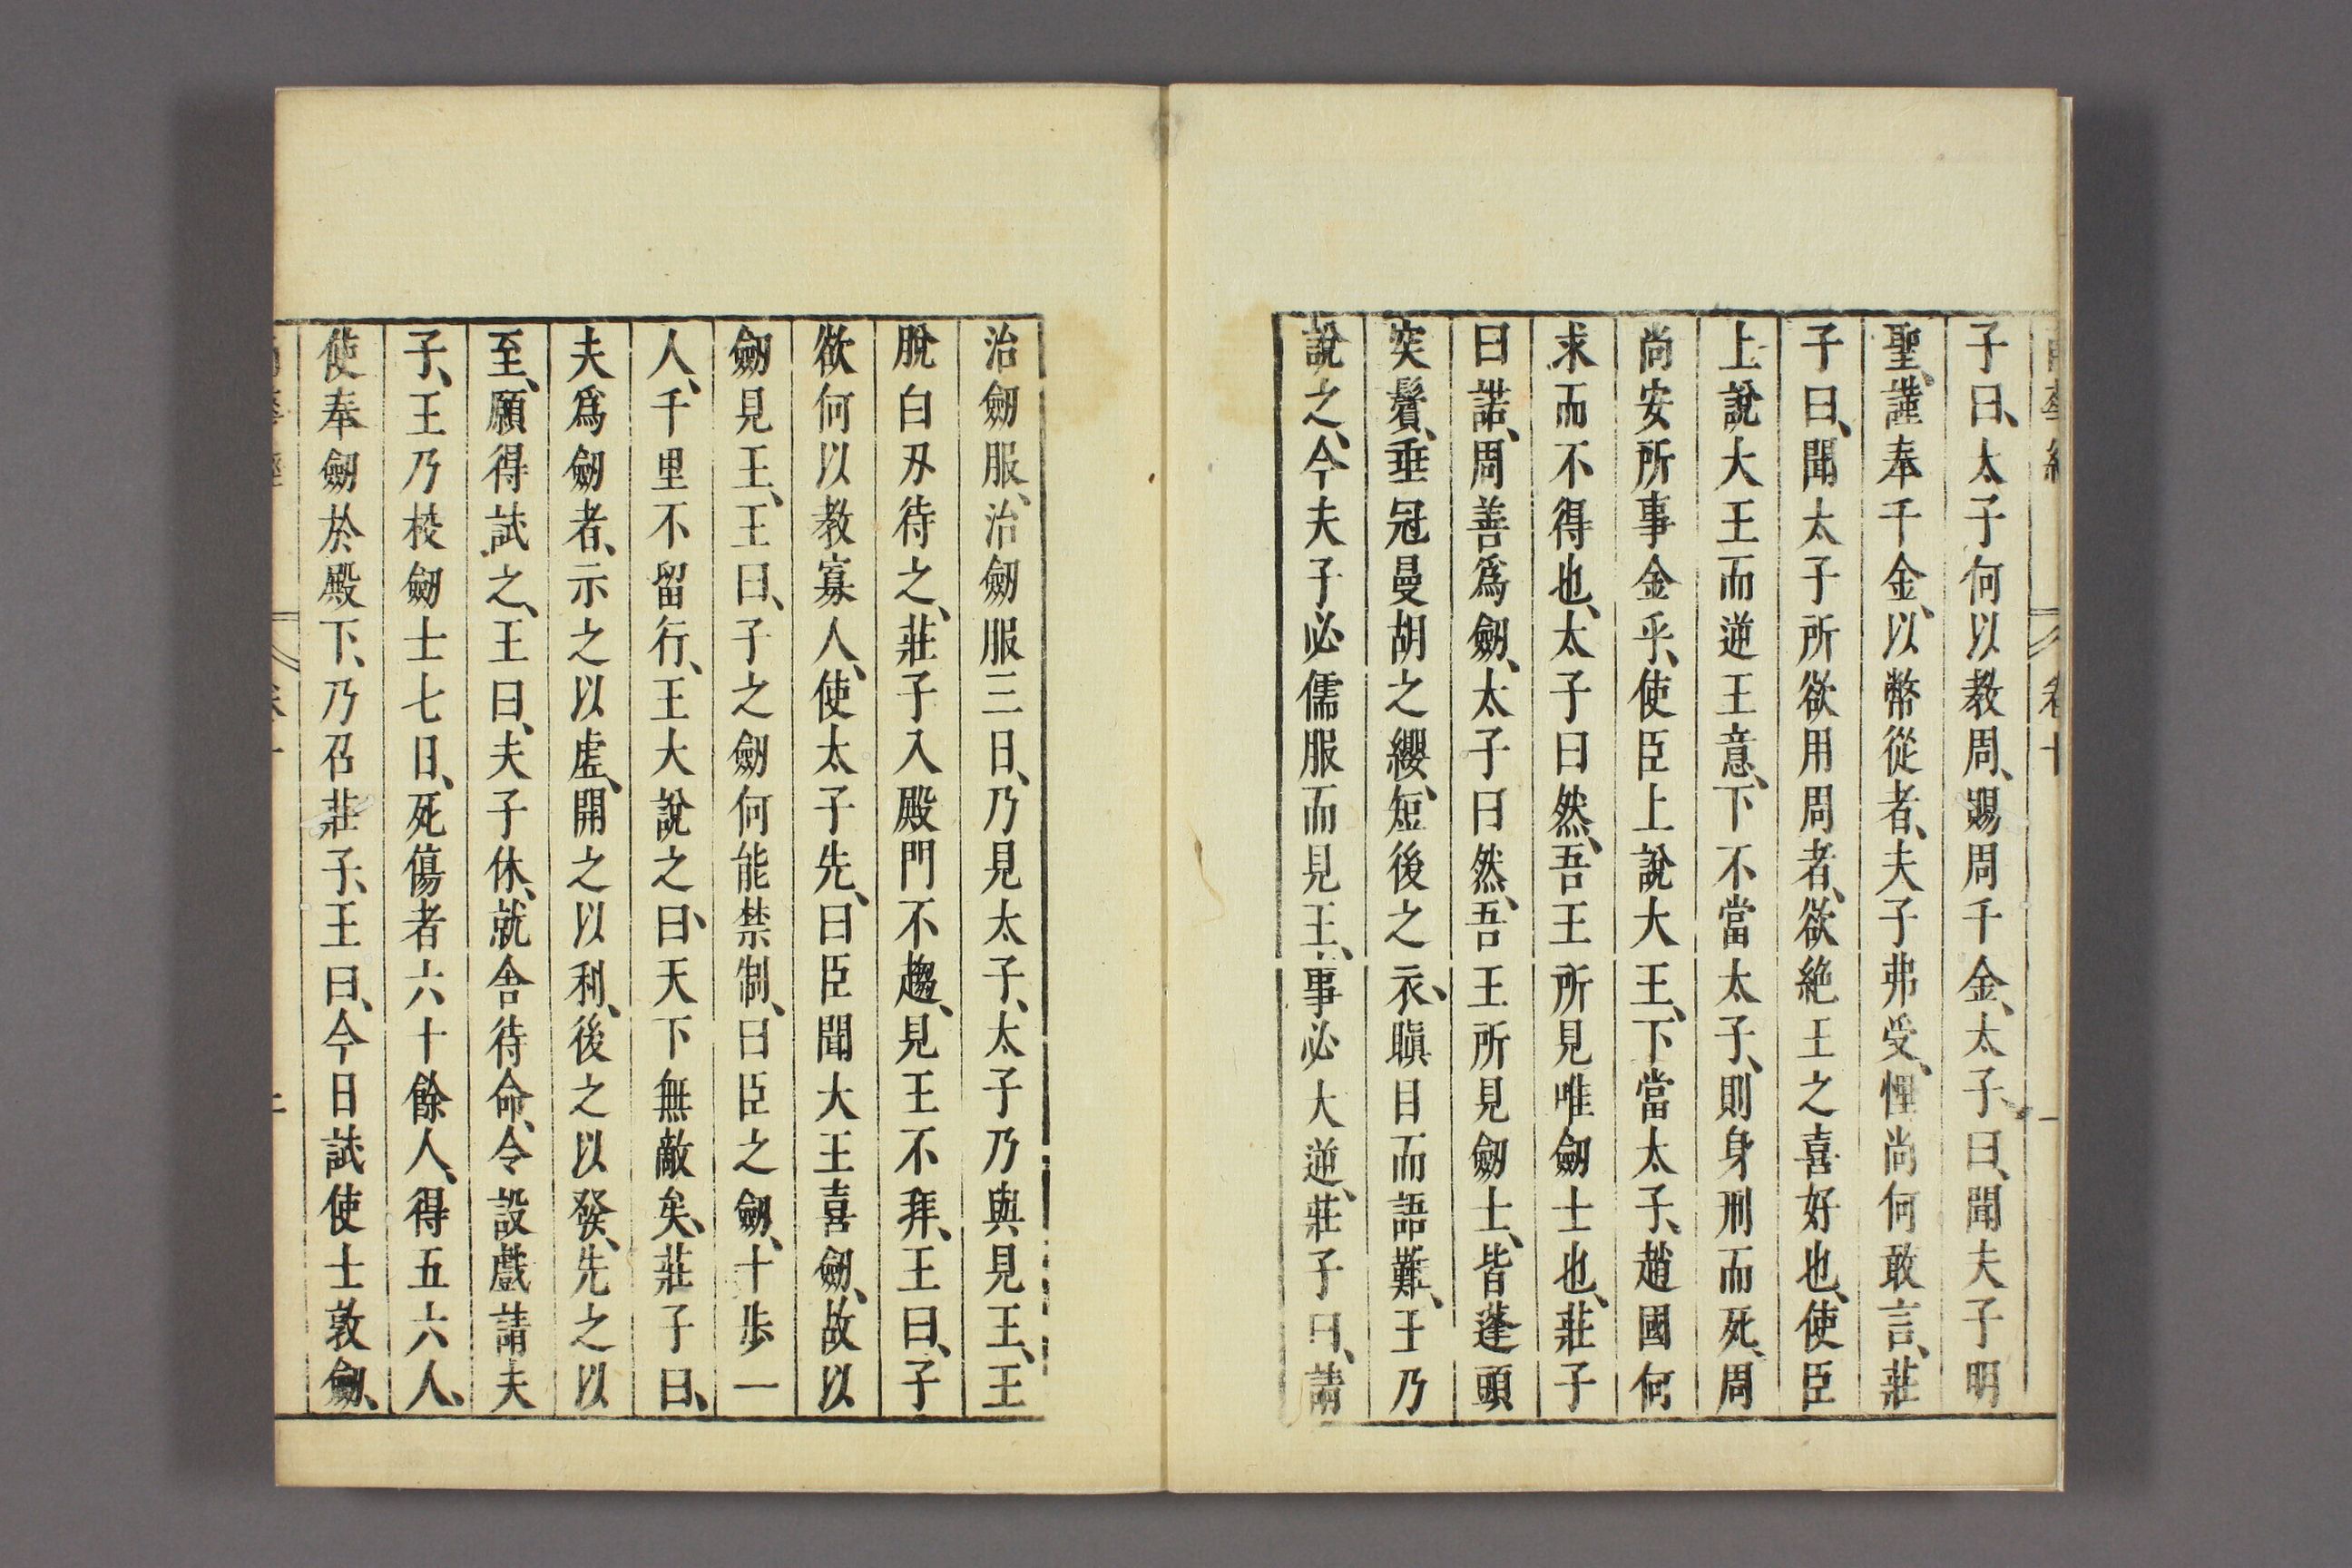 子曰、太子何以教周、賜周千金、太子曰、聞夫子明
聖、謹奉千金、以幣從者、夫子弗受、悝尚何敢言、莊
子曰、聞太子所欲用周者、欲絶王之喜好也、使臣
上說大王而逆王意、下不當太子、則身刑而死、周
尚安所事金乎、使臣上說大王、下當太子、趙國何
求而不得也、太子曰然、吾王所見唯劒士也、莊子
曰諾、周善爲劒、太子曰然、吾王所見劒士、皆蓬頭
突鬢、垂冠曼胡之纓、短後之衣、瞋目而語難、王乃
說之、今夫子必儒服而見王、事必大逆、莊子曰、請
治劒服、治劒服三日、乃見太子、太子乃與見王、王
脫白刃待之、莊子入殿門不趨、見王不拜、王曰、子
欲何以教寡人、使太子先、曰臣聞大王喜劒、故以
劒見王、王曰、子之劒何能禁制、曰臣之劒、十步一
人、千里不留行、王大說之、曰、天下無敵矣、莊子曰、
夫爲劒者、示之以虛、開之以利、後之以發、先之以
至、願得試之、王曰、夫子休、就舍待命、令設戲請夫
子、王乃校劒士七日、死傷者六十餘人、得五六人、
使奉劒於殿下、乃召莊子、王曰、今日試使士敦劒、